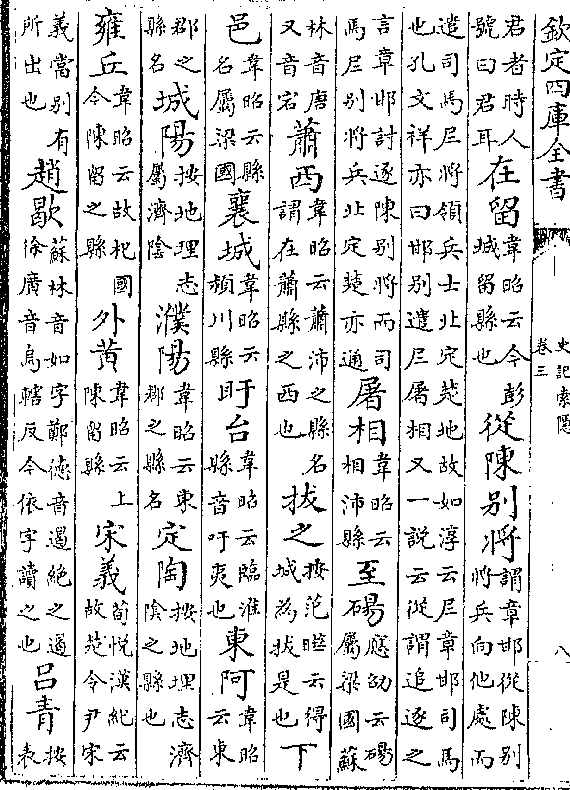 欽定四庫全書
史記索隱
卷三
八
君者時人號曰君耳在留韋昭云今彭城留縣也從陳別將謂章邯從陳別將兵向他處而
遣司馬𡰥將領兵士北定楚地故如淳云𡰥章邯司馬也孔文祥亦曰邯別遣𡰥屠相又一說云從謂追逐之
言章邯討逐陳別將而司馬𡰥別將兵北定楚亦通屠相韋昭云相沛縣至碭應劭云碭屬梁國蘇
林音唐又音宕蕭西韋昭云蕭沛之縣名謂在蕭縣之西也拔之按范曄云得城為拔是也下
邑韋昭云縣名屬梁國襄城韋昭云潁川縣盱台韋昭云臨淮縣音吁夷也東阿韋昭云東
郡之縣名城陽按地理志屬濟陰濮陽韋昭云東郡之縣名定陶按地理志濟陰之縣也
雍丘韋昭云故杞國今陳留之縣外黄韋昭云上陳留縣宋義荀悅漢紀云故楚令尹宋
義當別有所出也趙歇蘇林音如字鄭德音遏絕之遏徐廣音烏轄反今依字讀之也呂青按表